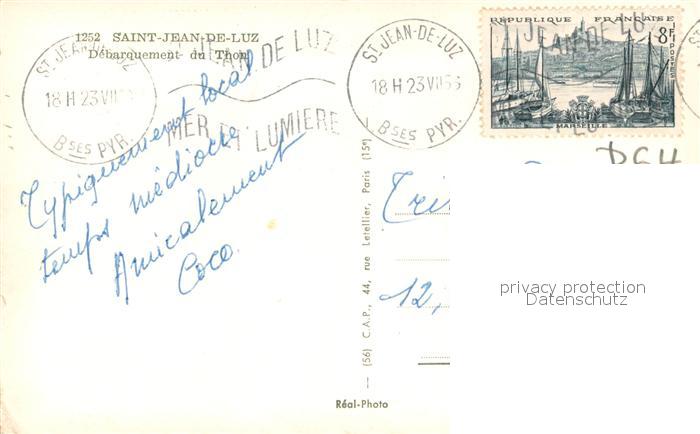 1252 SAINT-JEAN-DE-LUZ
Débarquement du Thon
ST JEAN-DE-LUZ
18 H 23 VII 56
BSES PYR.
ST JEAN DE LUZ
MER ET LUMIERE
ST JEAN-DE-LUZ
18 H 23 VII 56
BSES PYR.
REPUBLIQUE FRANÇAISE
8F
POSTES
MARSEILLE
JEAN DE LU
ET LU
Typiquement local
temps médiocre
Amicalement
Coco.
(56) C.A.P., 44, rue Letellier, Paris (15e)
12,
privacy protection
Datenschutz
Réal-Photo